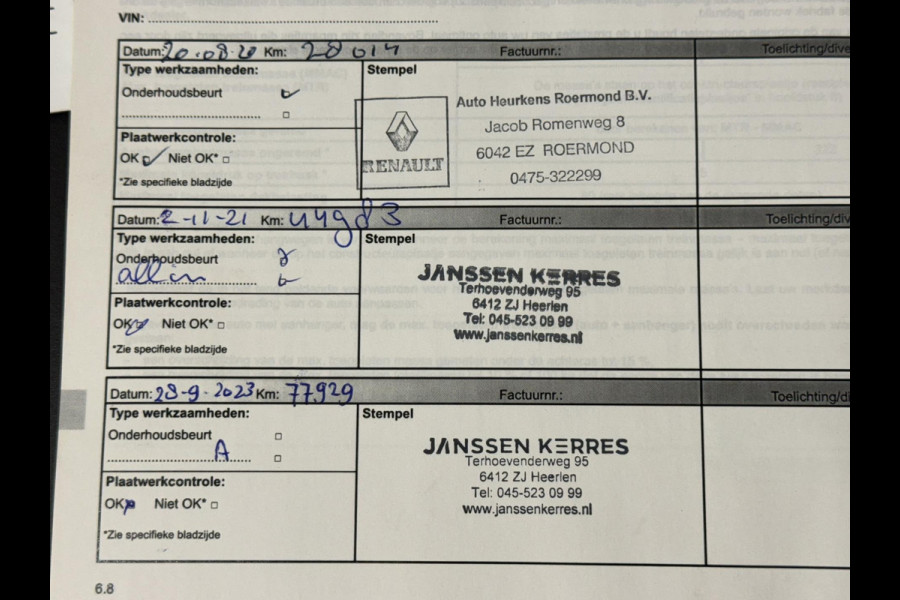 VIN:
Datum: 20.08.20 Km: 28014 Factuurnr.: Toelichting/dive
Type werkzaamheden: Stempel
Onderhoudsbeurt
Plaatwerkcontrole:
OK Niet OK*
*Zie specifieke bladzijde
RENAULT
Auto Heurkens Roermond B.V.
Jacob Romenweg 8
6042 EZ ROERMOND
0475-322299
Datum: 2-11-21 Km: 44983 Factuurnr.: Toelichting/div
Type werkzaamheden: Stempel
Onderhoudsbeurt
all in
Plaatwerkcontrole:
OK Niet OK*
*Zie specifieke bladzijde
JANSSEN KERRES
Terhoevenderweg 95
6412 ZJ Heerlen
Tel: 045-523 09 99
www.janssenkerres.nl
Datum: 28-9-2023 Km: 77.929 Factuurnr.: Toelichting/di
Type werkzaamheden: Stempel
Onderhoudsbeurt
A
Plaatwerkcontrole:
OK Niet OK*
*Zie specifieke bladzijde
JANSSEN KERRES
Terhoevenderweg 95
6412 ZJ Heerlen
Tel: 045-523 09 99
www.janssenkerres.nl
6.8